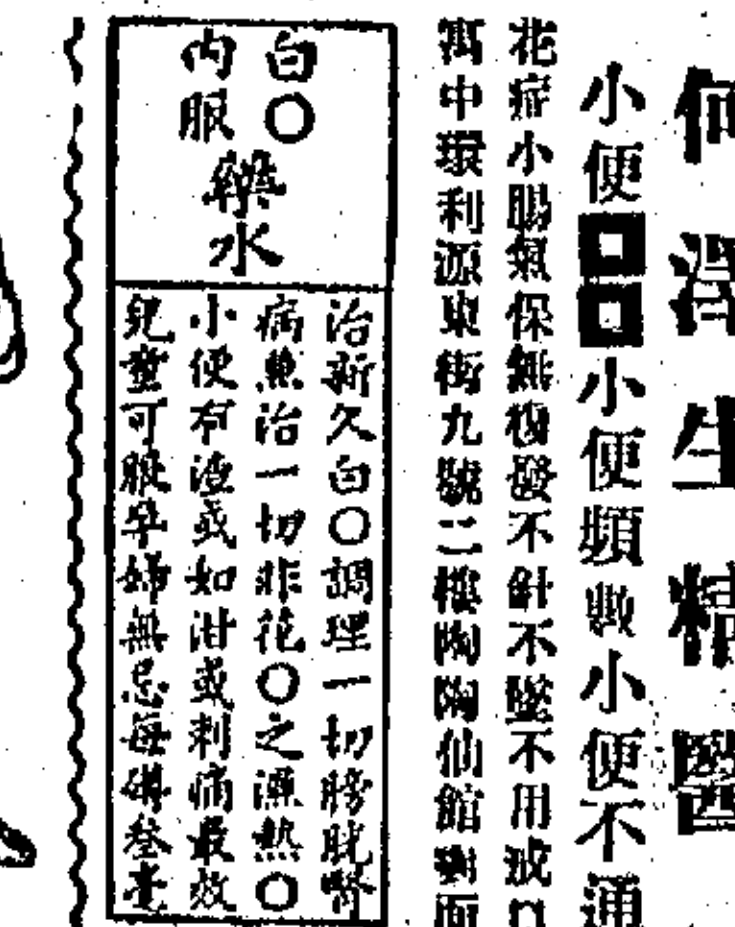 何濟生精醫
小便□□小便頻數小便不通
花症小腸氣保無復發不針不墜不用戒口
寓中環利源東街九號二樓陶陶仙館對面
白○
內服
藥水
治新久白○調理一切膀胱腎
病兼治一切非花○之濕熱○
小便有渣或如泔或刺痛最效
兒童可服孕婦無忌每樽叁毫